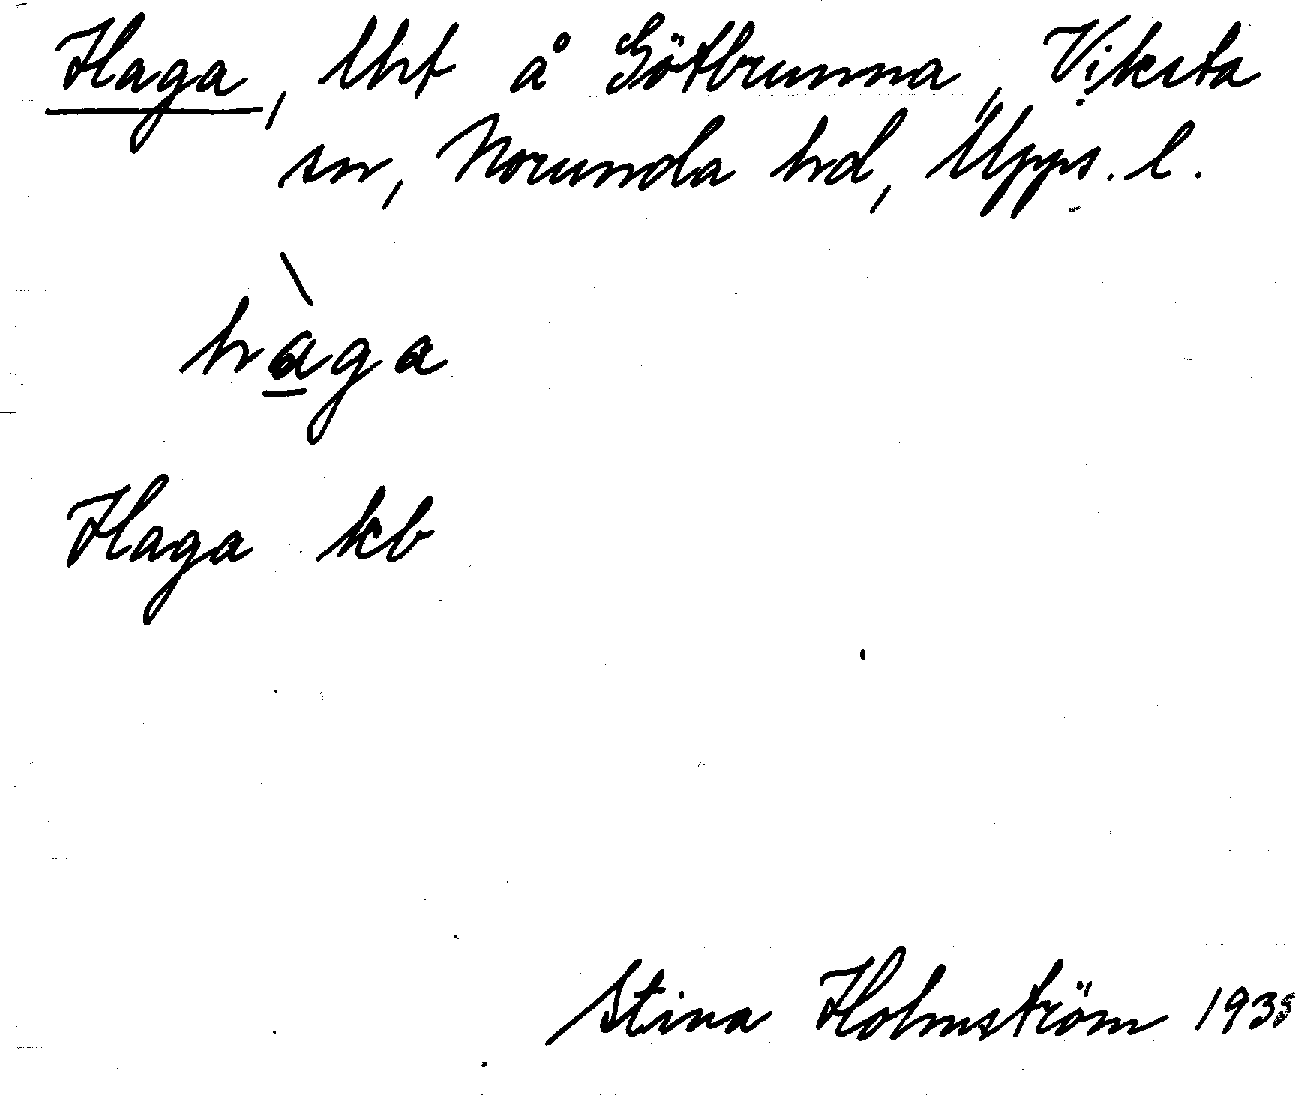 Haga, lht å Götbrunna, Viksta
sn, Norunda hd, Upps. l.
hàga
Haga kb
Stina Holmström